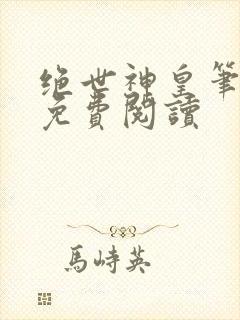 绝世神皇笔
免費閱讀
馬峙英